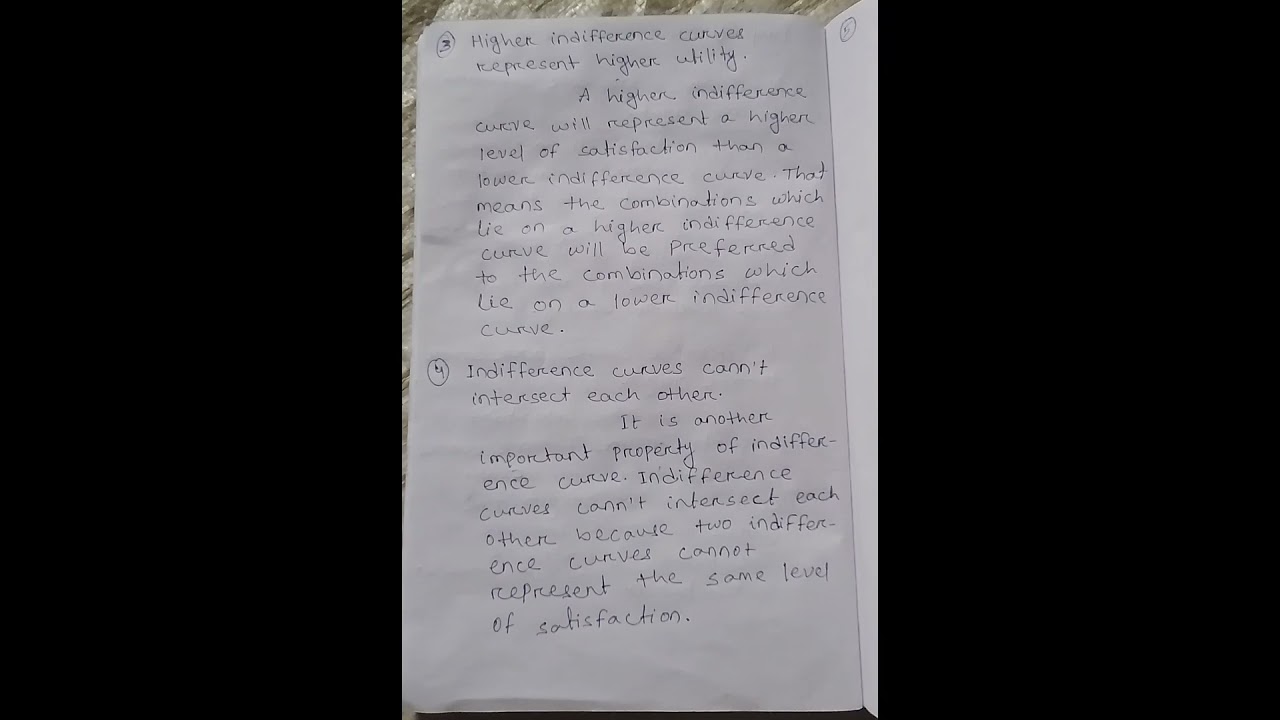 ③ Higher indifference curves
represent higher utility.
A higher indifference
curve will represent a higher
level of satisfaction than a
lower indifference curve. That
means the combinations which
lie on a higher indifference
curve will be preferred
to the combinations which
lie on a lower indifference
curve.
④ Indifference curves cann't
intersect each other.
It is another
important property of indiffer-
ence curve. Indifference
curves cann't intersect each
other because two indiffer-
ence curves cannot
represent the same level
of satisfaction.
⑤